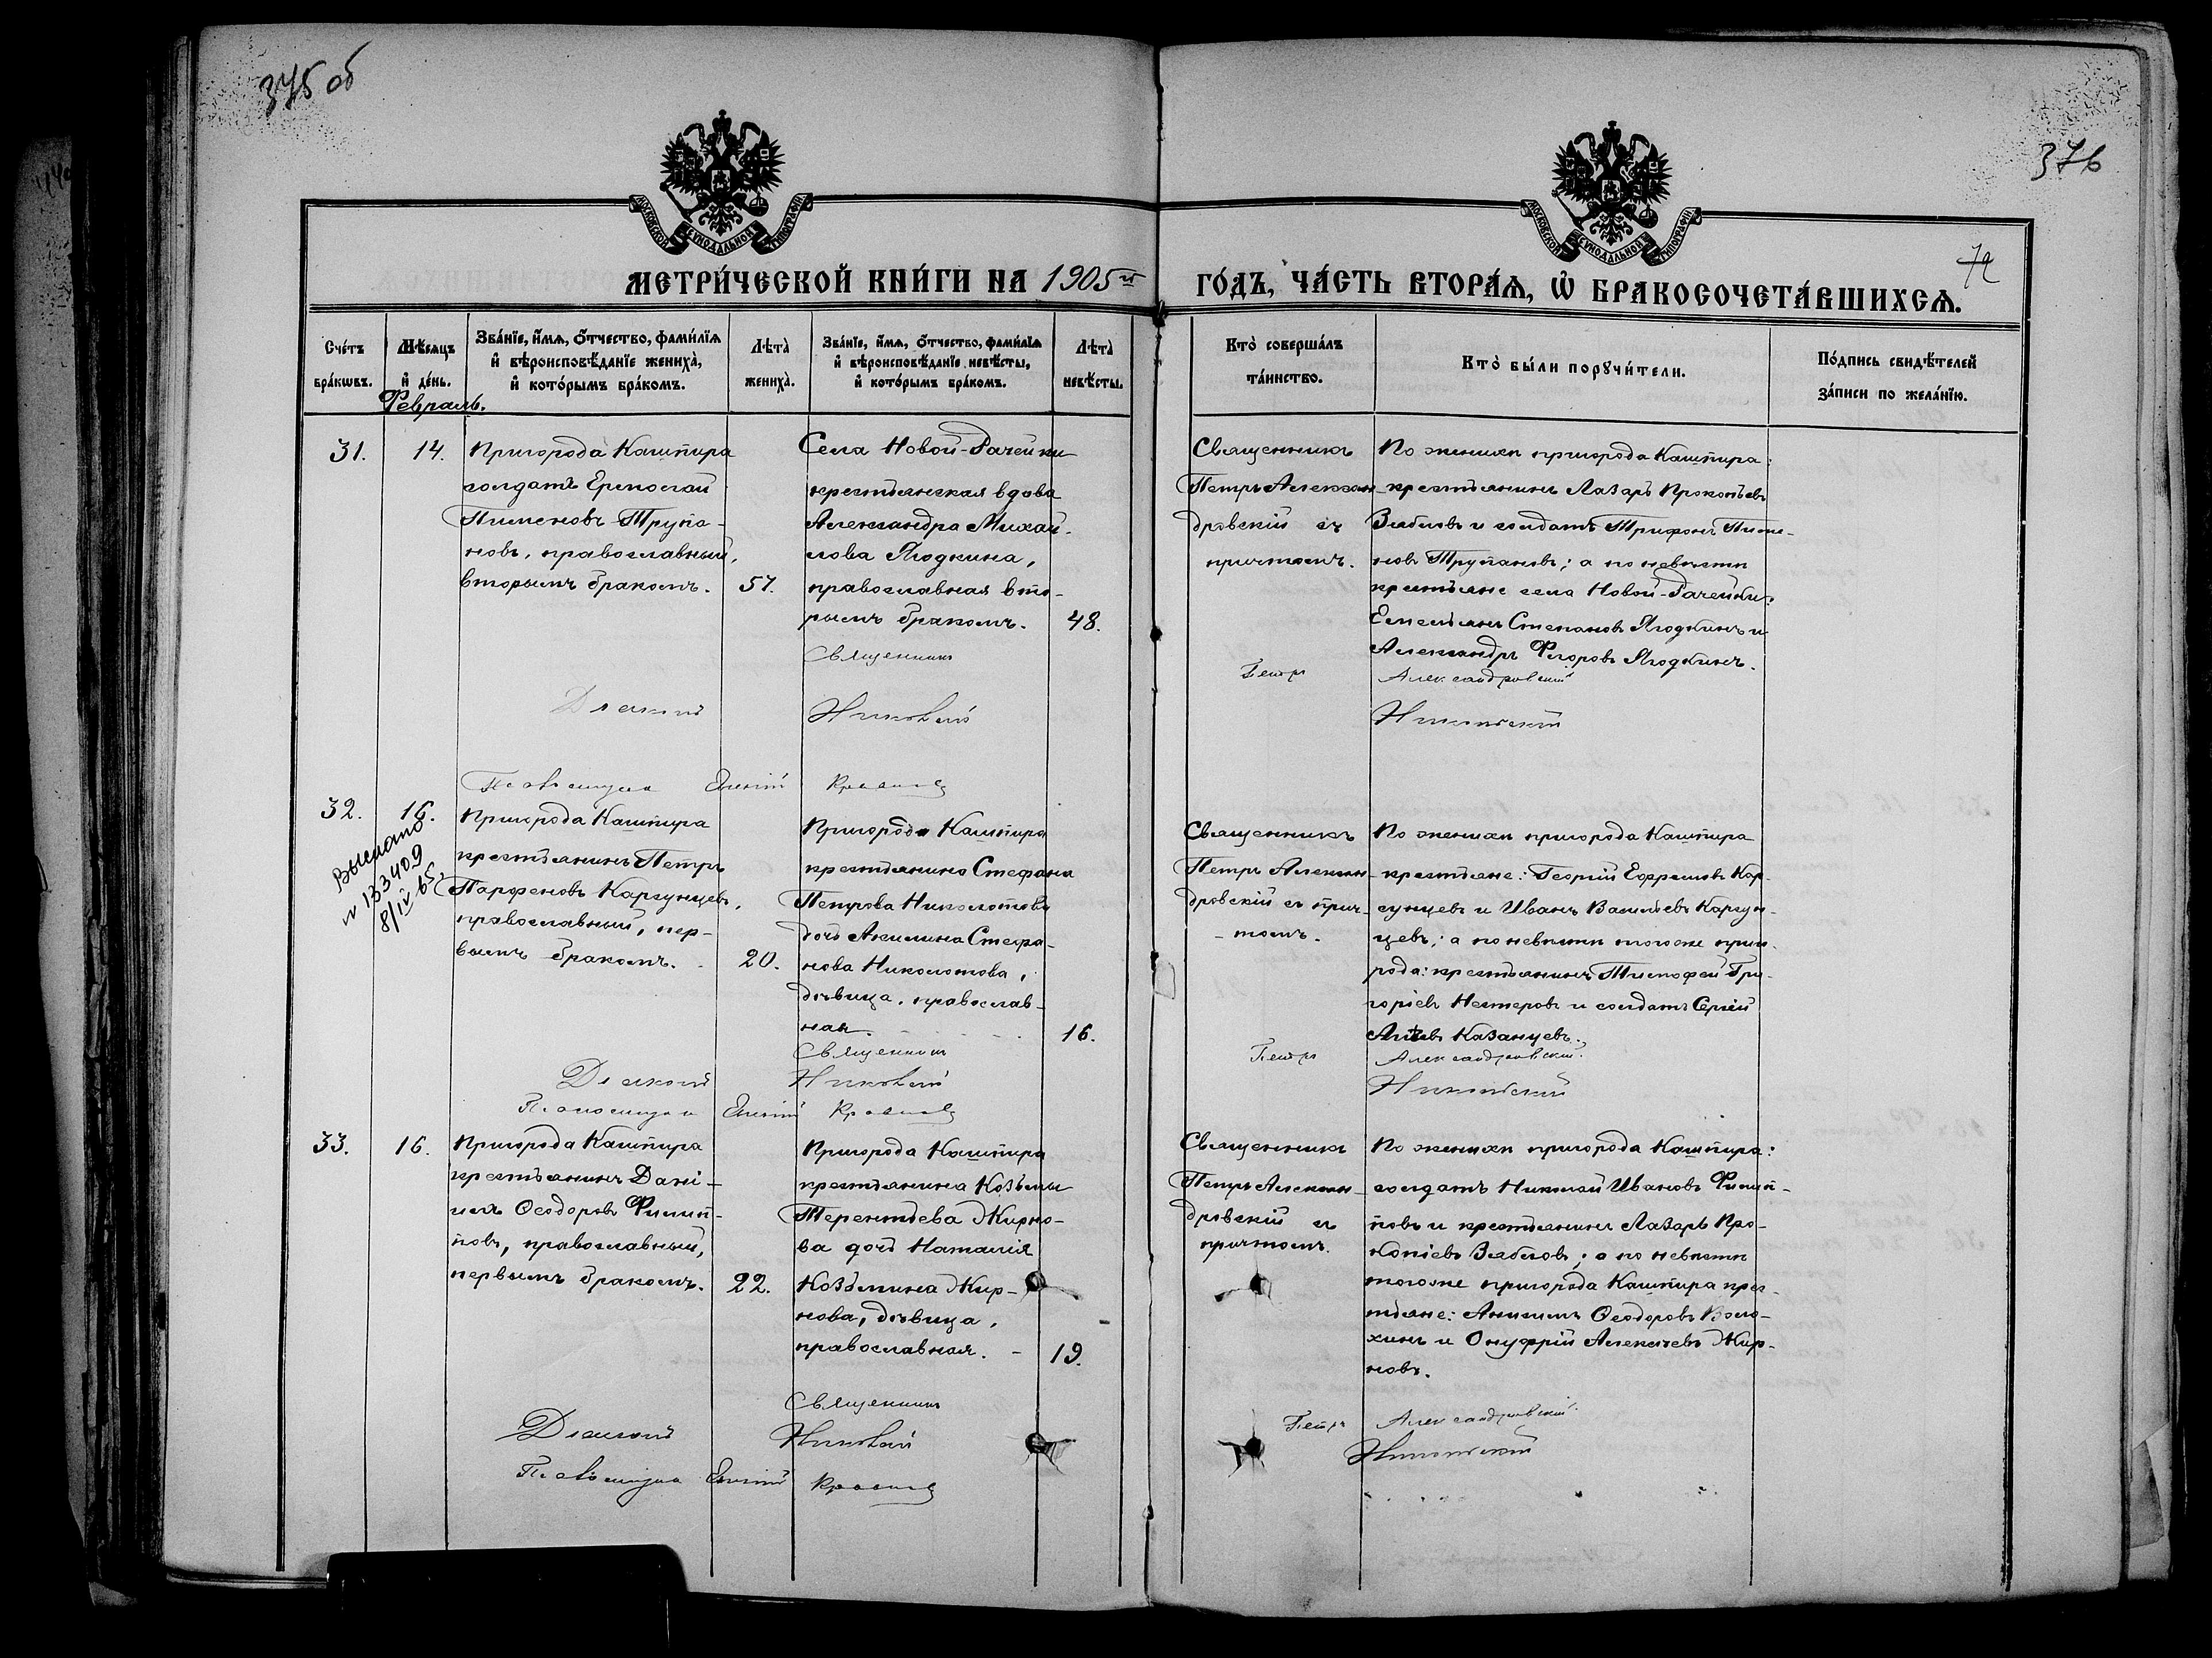 375 об
376
72
МОСКОВСКОЙ СѴНОДАЛЬНОЙ ТИПОГРАФІИ
МОСКОВСКОЙ СѴНОДАЛЬНОЙ ТИПОГРАФІИ
МЕТРИ́ЧЕСКОЙ КНИ́ГИ НА 1905й ГО́ДЪ, ЧА́СТЬ ВТОРА́Я, Ѡ҆ БРАКОСОЧЕТА́ВШИХСЯ.
Сче́тъ бра́кѡвъ.
Мѣ́сяцъ и҆ де́нь.
Зва́нїе, и҆́мѧ, ѻ҆́тчество, фами́лїѧ
и҆ вѣроисповѣ́данїе жениха̀,
и҆ кото́рымъ бра́комъ.
Лѣта̀ жениха̀.
Зва́нїе, и҆́мѧ, ѻ҆́тчество, фами́лїѧ
и҆ вѣроисповѣ́данїе невѣ́сты,
и҆ кото́рымъ бра́комъ.
Лѣта̀ невѣ́сты.
Кто̀ соверша́лъ та́инство.
Кто̀ бы́ли порꙋчи́тели.
По́дпись свидѣ́телей
за́писи по жела́нїю.
Февраль.
31.
14.
Пригорода Кашпира
солдатъ Ермолай
Пименовъ Трупа-
новъ, православный,
вторымъ бракомъ.
57.
Села Новой-Рачейки
крестьянская вдова
Александра Михай-
лова Ягодкина,
православная вто-
рымъ бракомъ.
48.
Священникъ
Петръ Алексан-
дровскій съ
причтомъ.
По женихѣ пригорода Кашпира:
крестьянинъ Лазарь Прокопьевъ
Зябловъ и солдатъ Трифонъ Пиме-
новъ Трупановъ; а по невѣстѣ
крестьяне села Новой-Рачейки:
Емельянъ Степановъ Ягодкинъ и
Александръ Флоровъ Ягодкинъ.
Священникъ Петръ Александровскій
Діаконъ Николай Никольскій
Псаломщикъ
32.
16.
Выслано
№ 133409
8/IV 65.
Пригорода Кашпира
крестьянинъ Петръ
Парфеновъ Карсунцевъ,
православный, пер-
вымъ бракомъ.
20.
Пригорода Кашпира
крестьянина Стефана
Петрова Николотова
дочь Акилина Стефа-
нова Николотова,
дѣвица, православ-
ная.
16.
Священникъ
Петръ Алексан-
дровскій съ прич-
томъ.
По женихѣ пригорода Кашпира
крестьяне: Георгій Ефремовъ Кар-
сунцевъ и Иванъ Васильевъ Карсун-
цевъ; а по невѣстѣ тогоже приго-
рода: крестьянинъ Тимофей Гри-
горіевъ Нестеровъ и солдатъ Сергій
Казанцевъ.
Священникъ Петръ Александровскій
Діаконъ Николай Никольскій
Псаломщикъ
33.
16.
Пригорода Кашпира
крестьянинъ Дані-
илъ Ѳеодоровъ Филип-
повъ, православный,
первымъ бракомъ.
22.
Пригорода Кашпира
крестьянина Козьмы
Терентьева Жирно-
ва дочь Наталія
Козьмина Жир-
нова, дѣвица,
православная.
19.
Священникъ
Петръ Алексан-
дровскій съ
причтомъ.
По женихѣ пригорода Кашпира:
солдатъ Николай Ивановъ Филип-
повъ и крестьянинъ Лазарь Про-
копіевъ Зябловъ; а по невѣстѣ
тогоже пригорода Кашпира крес-
тьяне: Анисимъ Ѳеодоровъ Воло-
хинъ и Онуфрій Алексѣевъ Жир-
новъ.
Священникъ Петръ Александровскій
Діаконъ Николай Никольскій
Псаломщикъ